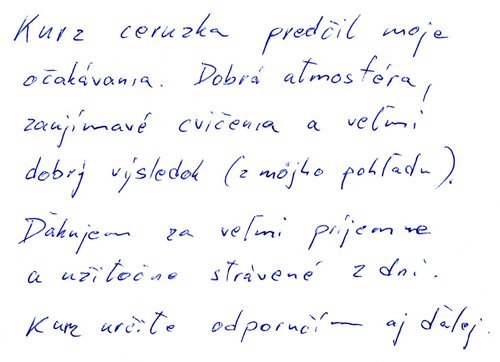 Kurz ceruzka predčil moje
očakávania. Dobrá atmosféra,
zaujímavé cvičenia a veľmi
dobrý výsledok (z môjho pohľadu).
Ďakujem za veľmi príjemne
a užitočne strávené 2 dni.
Kurz určite odporučím aj ďalej.